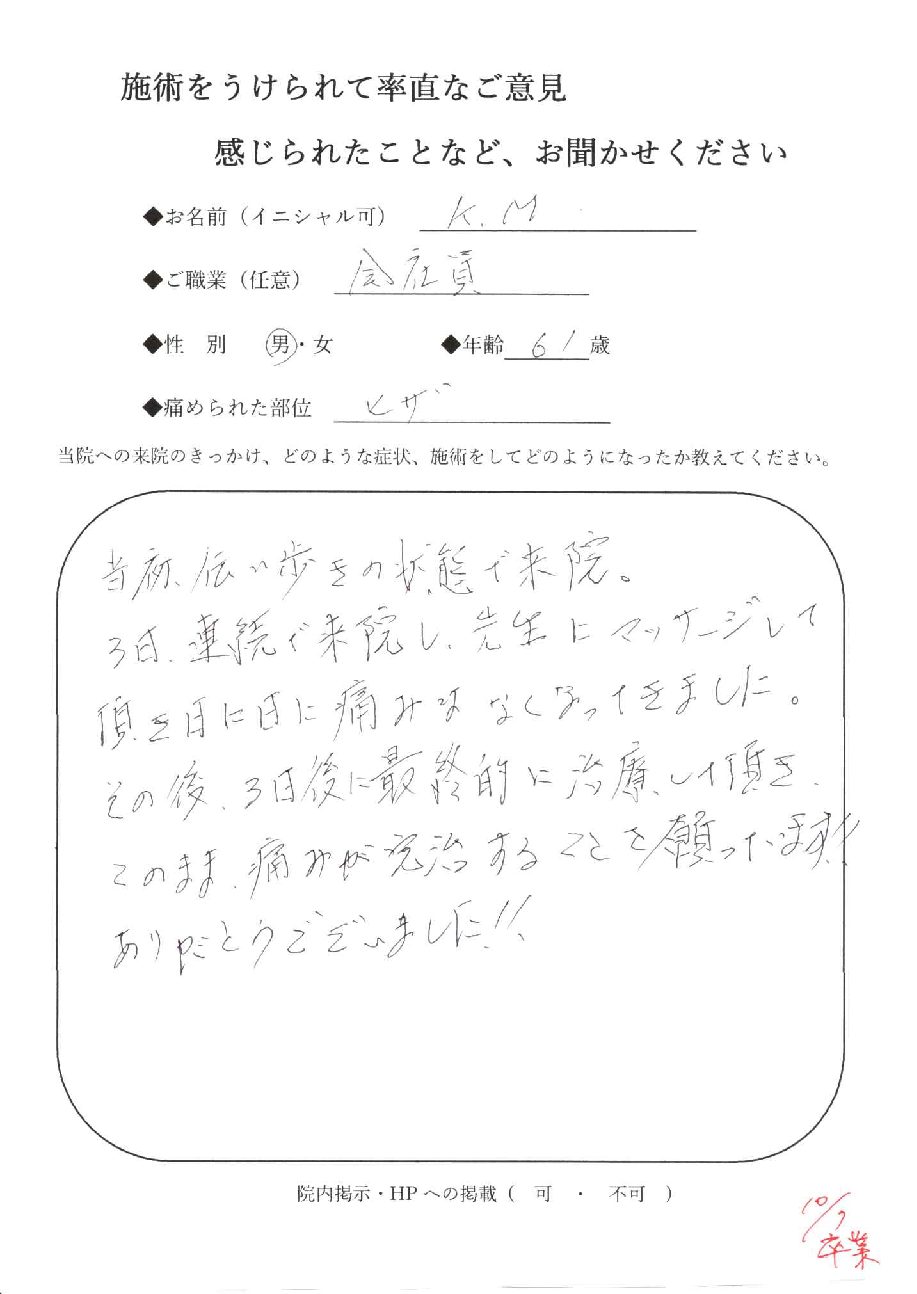 施術をうけられて率直なご意見
感じられたことなど、お聞かせください
◆お名前（イニシャル可） K.M
◆ご職業（任意） 会社員
◆性 別 男・女 ◆年齢 61 歳
◆痛められた部位 ヒザ
当院への来院のきっかけ、どのような症状、施術をしてどのようになったか教えてください。
当初、伝い歩きの状態で来院。
3日、連続で来院し、先生にマッサージして
頂き日に日に痛みはなくなってきました。
その後、3日後に最終的に治療して頂き、
このまま、痛みが完治することを願っ
ありがとうございました!!
院内掲示・HPへの掲載（ 可 ・ 不可 ）
10/7
卒業